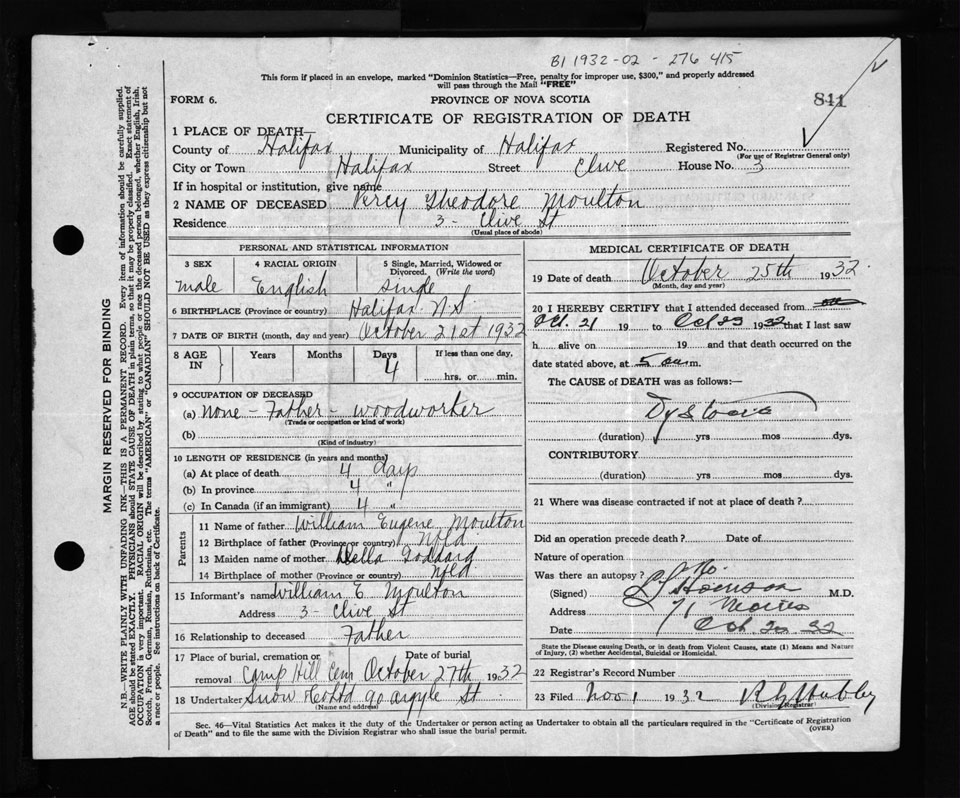 B1 1932-02 - 276 415
This form if placed in an envelope, marked "Dominion Statistics—Free, penalty for improper use, $300," and properly addressed
will pass through the Mail "FREE"
FORM 6.
PROVINCE OF NOVA SCOTIA
841
CERTIFICATE OF REGISTRATION OF DEATH
1 PLACE OF DEATH—
County of Halifax Municipality of Halifax Registered No.
(For use of Registrar General only)
City or Town Halifax Street Clive House No. 3
If in hospital or institution, give name
2 NAME OF DECEASED Percy Theodore Moulton
Residence 3 - Clive St
(Usual place of abode)
PERSONAL AND STATISTICAL INFORMATION
3 SEX
male
4 RACIAL ORIGIN
English
5 Single, Married, Widowed or
Divorced. (Write the word)
single
6 BIRTHPLACE (Province or country) Halifax N.S
7 DATE OF BIRTH (month, day and year) October 21st 1932
8 AGE IN
Years Months Days If less than one day,
4 hrs. or min.
9 OCCUPATION OF DECEASED
(a) None - Father - woodworker
(Trade or occupation or kind of work)
(b)
(Kind of industry)
10 LENGTH OF RESIDENCE (in years and months)
(a) At place of death 4 days
(b) In province 4 "
(c) In Canada (if an immigrant) 4 "
Parents
11 Name of father William Eugene Moulton
12 Birthplace of father (Province or country) Nfld.
13 Maiden name of mother Della Goddard
14 Birthplace of mother (Province or country) Nfld
15 Informant's name William E Moulton
Address 3 - Clive St
16 Relationship to deceased Father
17 Place of burial, cremation or removal Date of burial
Camp Hill Cem October 27th 1932
18 Undertaker Snow & Co Ltd 90 Argyle St
(Name and address)
MEDICAL CERTIFICATE OF DEATH
19 Date of death October 25th 1932
(Month, day and year)
20 I HEREBY CERTIFY that I attended deceased from
Oct. 21 19 to Oct 1932 that I last saw
h alive on 19 and that death occurred on the
date stated above, at 5 a.m.
The CAUSE of DEATH was as follows:—
(duration) yrs mos dys.
CONTRIBUTORY
(duration) yrs mos dys.
21 Where was disease contracted if not at place of death?
Did an operation precede death? Date of
Nature of operation
Was there an autopsy? No.
(Signed) M.D.
Address 71
Date Oct.
State the Disease causing Death, or in death from Violent Causes, state (1) Means and Nature
of Injury, (2) whether Accidental, Suicidal or Homicidal.
22 Registrar's Record Number
23 Filed Nov 1 1932
(Division Registrar)
Sec. 46—Vital Statistics Act makes it the duty of the Undertaker or person acting as Undertaker to obtain all the particulars required in the "Certificate of Registration
of Death" and to file the same with the Division Registrar who shall issue the burial permit.
(OVER)
MARGIN RESERVED FOR BINDING
N.B.—WRITE PLAINLY WITH UNFADING INK—THIS IS A PERMANENT RECORD. Every item of information should be carefully supplied.
AGE should be stated EXACTLY. PHYSICIANS should STATE CAUSE OF DEATH in plain terms, so that it may be properly classified. Exact statement of
OCCUPATION is very important. RACIAL ORIGIN will be described by stating to what people or race the deceased person belonged, whether English, Irish,
Scotch, French, German, Russian, Ruthenian, etc. The terms "AMERICAN" or "CANADIAN" SHOULD NOT BE USED as they express citizenship but not
a race or people. See instructions on back of Certificate.